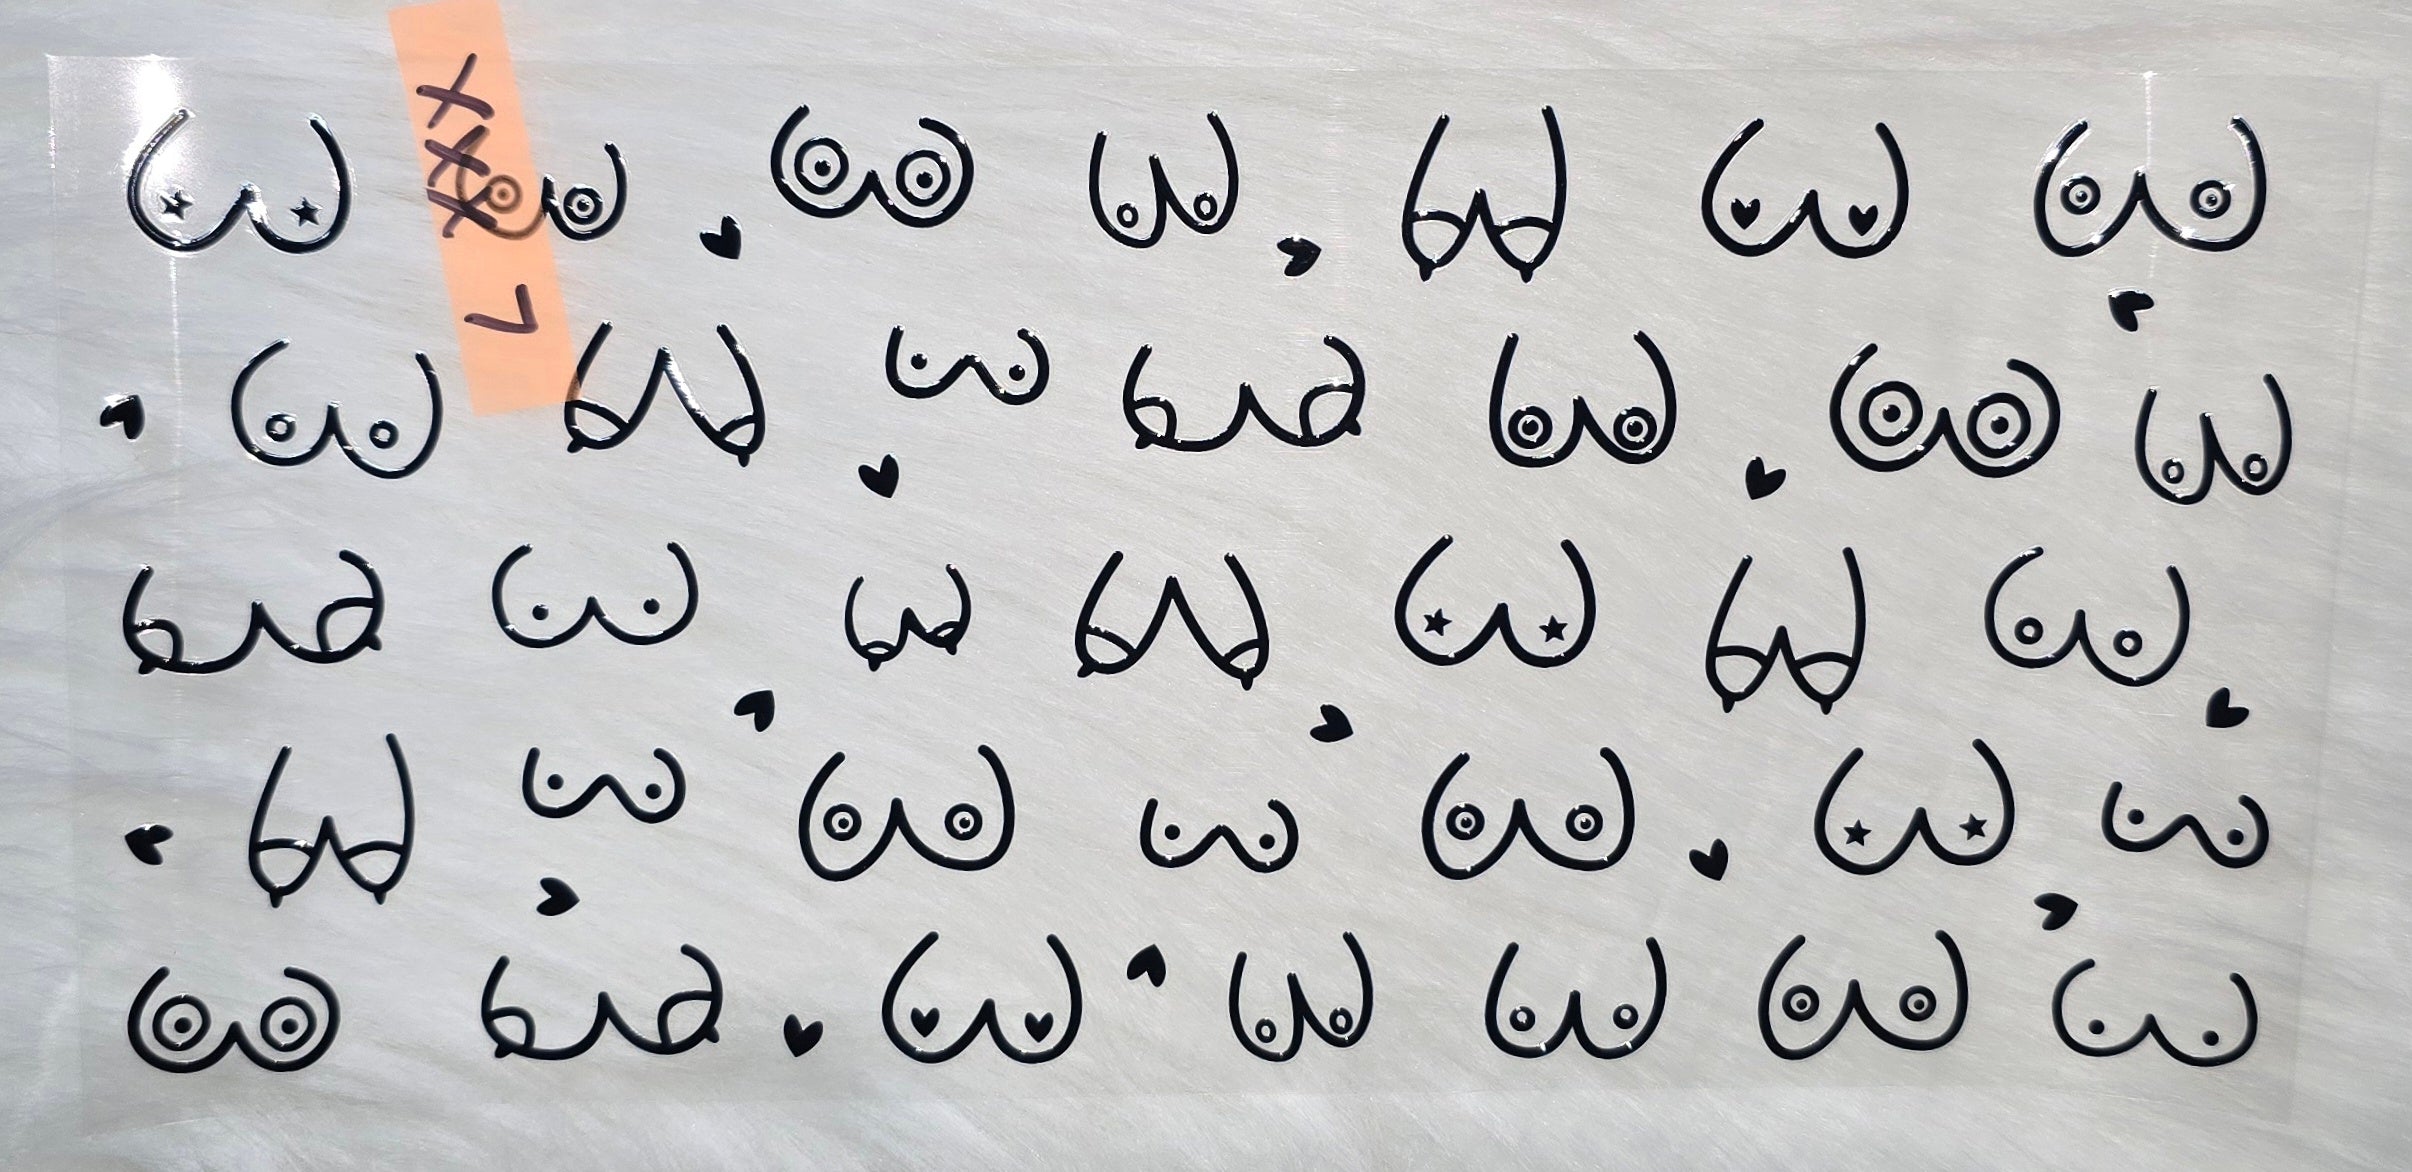 XXX 7